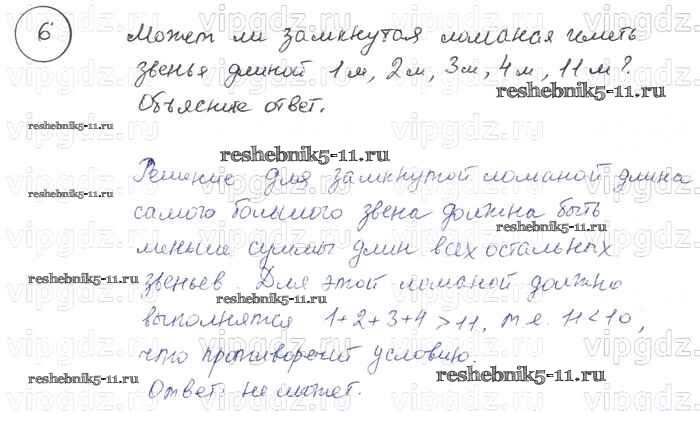 6
Может ли замкнутая ломаная иметь
звенья длиной 1м, 2м, 3м, 4м, 11м?
reshebnik5-11.ru
Объясните ответ.
reshebnik5-11.ru
reshebnik5-11.ru
Решение для замкнутой ломаной длина
reshebnik5-11.ru
самого большого звена должна быть
reshebnik5-11.ru
меньше суммы длин всех остальных
reshebnik5-11.ru
звеньев. Для этой ломаной должно
reshebnik5-11.ru
выполнятся 1+2+3+4>11, т.е. 11<10,
что противоречит условию.
reshebnik5-11.ru
reshebnik5-11.ru
Ответ: не может.
vipgdz.ru